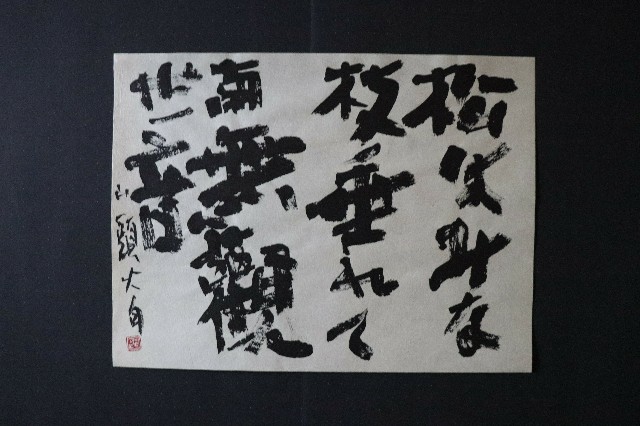 松はみな
枝垂れて
南無觀
世音
山頭火